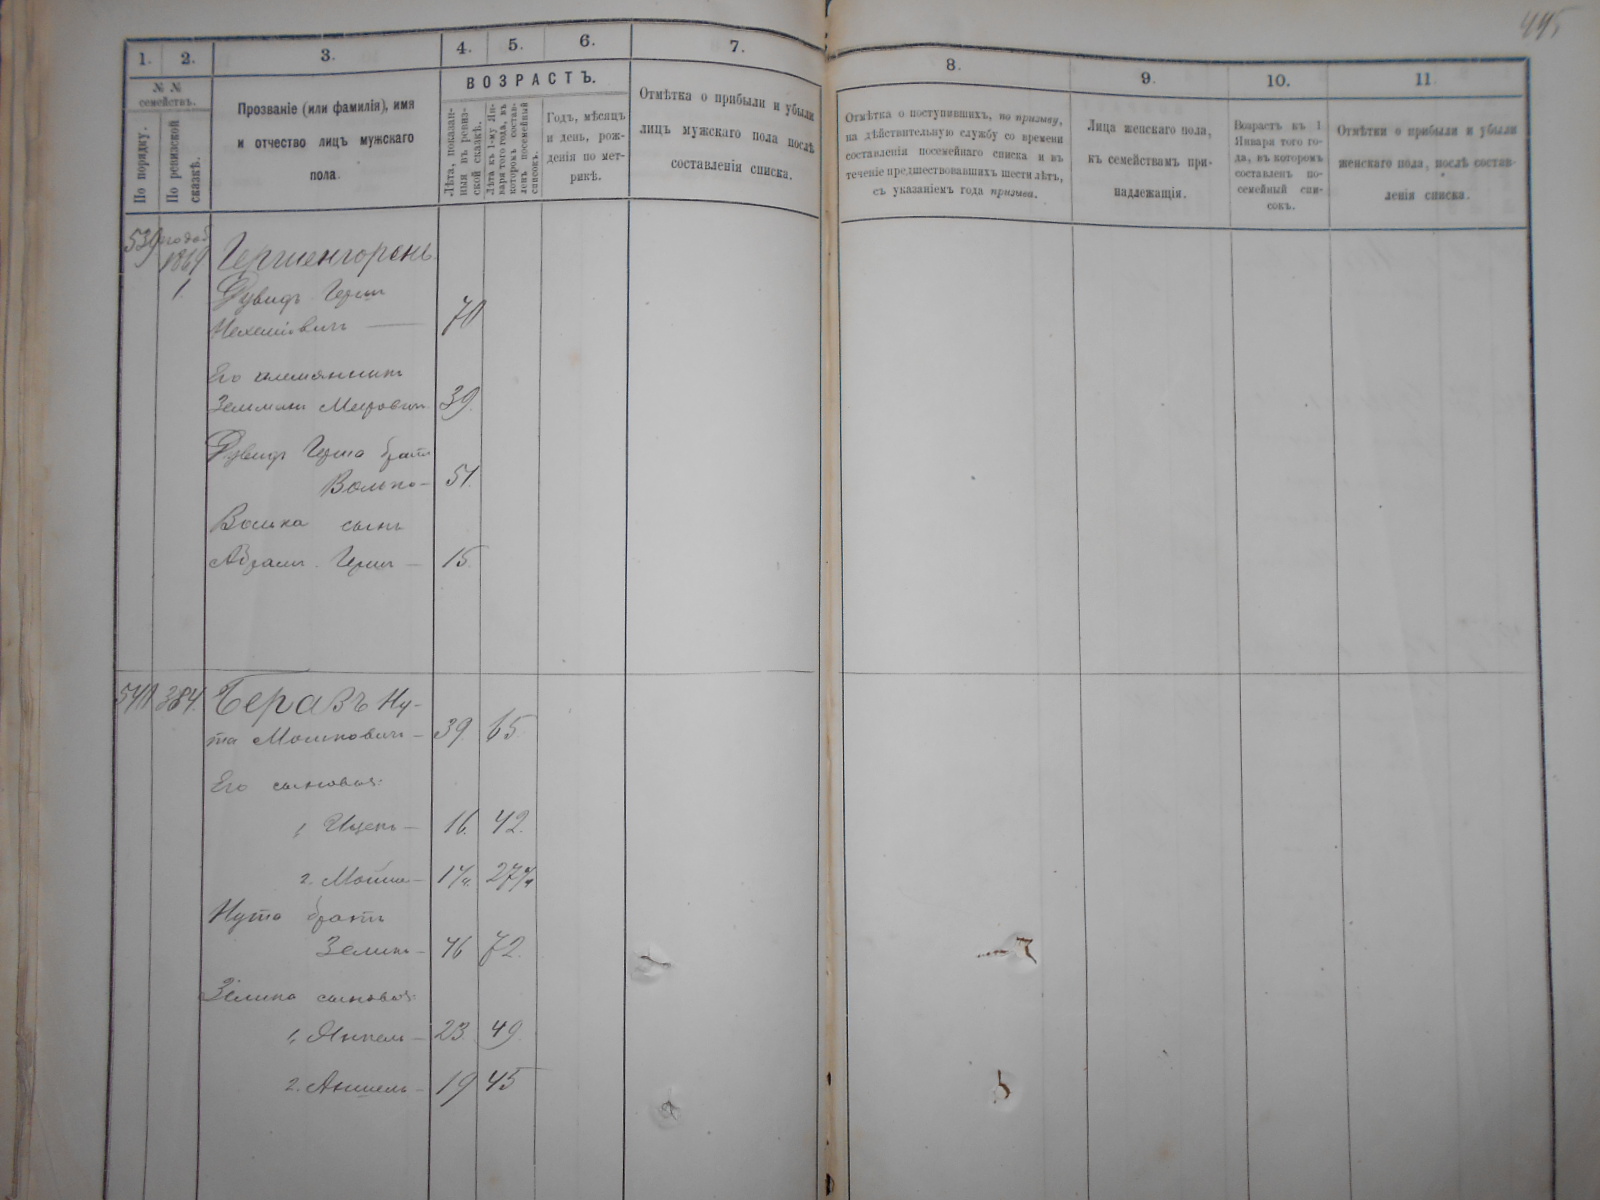 445
1.
2.
3.
4.
5.
6.
7.
8.
9.
10.
11
№ №
семействъ.
По порядку.
По ревизской
сказкѣ.
Прозваніе (или фамилія), имя
и отчество лицъ мужскаго
пола.
ВОЗРАСТЪ.
Лѣта, показан-
ныя въ ревиз-
ской сказкѣ.
Лѣта къ 1-му Ян-
варя того года, въ
которомъ состав-
ленъ посемейный
списокъ.
Годъ, мѣсяцъ
и день, рож-
денія по мет-
рикѣ.
Отмѣтка о прибыли и убыли
лицъ мужскаго пола послѣ
составленія списка.
Отмѣтка о поступившихъ, по призыву,
на дѣйствительную службу со времени
составленія посемейнаго списка и въ
теченіе предшествовавшихъ шести лѣтъ,
съ указаніемъ года призыва.
Лица женскаго пола,
къ семействамъ при-
надлежащія.
Возрастъ къ 1
Января того го-
да, въ которомъ
составленъ по-
семейный спи-
сокъ.
Отмѣтки о прибыли и убыли
женскаго пола, послѣ состав-
ленія списка.
539 года 1869
Гершенгоренъ
1. Дувидъ Герш
70
Его племянникъ
Зельманъ Меировичъ 39.
Дувидъ Герша братъ
Волько — 51.
Волька сынъ
Абрамъ Герш — 15.
384. Беразъ Ну-
та Мошковичъ — 39. 65.
Его сыновья:
1, Ицекъ — 16. 42.
2. Мошко —
Нута братъ
Зеликъ — 46 72.
Зелика сыновья:
1, Янкель — 23. 49.
2. Аншель — 19 45